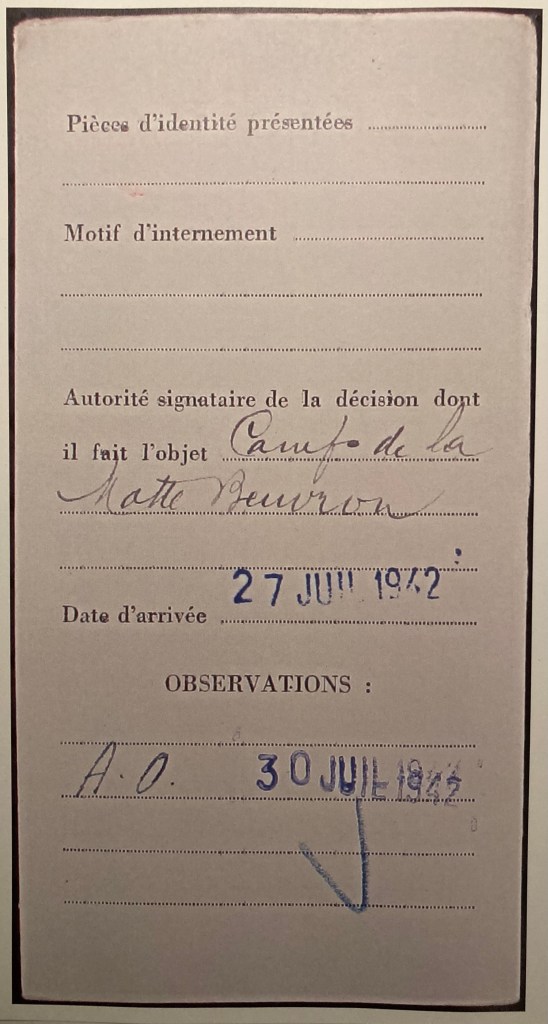 Pièces d'identité présentées
Motif d'internement
Autorité signataire de la décision dont
il fait l'objet Camp de la
Motte Beuvron
27 JUIL 1942
Date d'arrivée
OBSERVATIONS :
A.O. 30 JUIL 1942